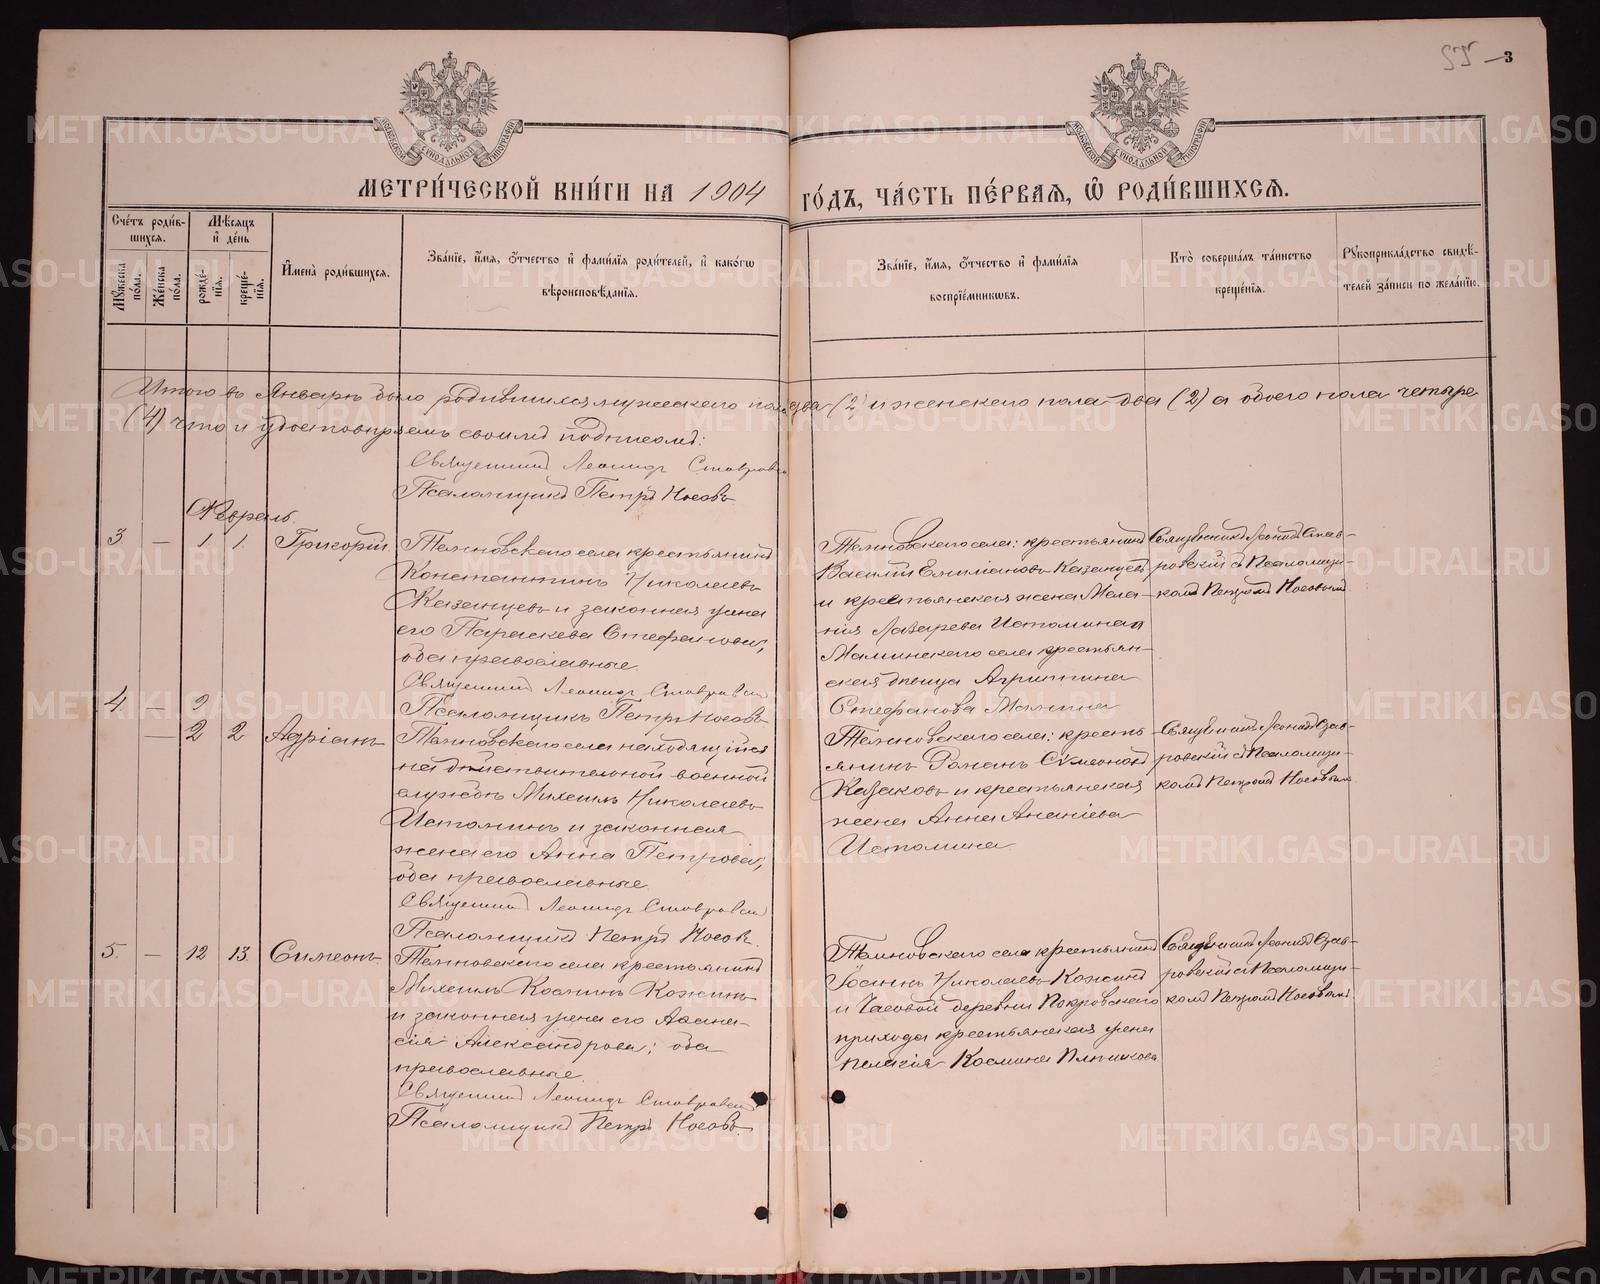 3
МОСКОВСКОЙ СѴНОДАЛЬНОЙ ТИПОГРАФІИ
МОСКОВСКОЙ СѴНОДАЛЬНОЙ ТИПОГРАФІИ
МЕТРИ́ЧЕСКОЙ КНИ́ГИ НА 1904 ГО́ДЪ, ЧА́СТЬ ПЕ́РВАЯ, Ѡ РОДИ́ВШИХСЯ.
Счётъ роди́вшихся.
Му́жеска по́ла.
Же́нска по́ла.
Мѣ́сяцъ и де́нь
рожде́нія.
креще́нія.
Имена̀ роди́вшихся.
Зва́ніе, и́мя, о́тчество и фами́лія роди́телей, и како́гѡ
вѣроисповѣ́данія.
Зва́ніе, и́мя, о́тчество и фами́лія
воспріе́мниковъ.
Кто̀ соверша́лъ та́инство
креще́нія.
Рукоприкла́дство свидѣ́-
телей за́писи по жела́нію.
Итого въ Январѣ было родившихся мужескаго пола два (2) и женскаго пола два (2) а обоего пола четыре
(4) что и удостовѣряемъ своимъ подписомъ:
Священникъ Леонидъ Ставровскій
Псаломщикъ Петръ Носовъ
Февраль
3 — 1 1 Григорій
Темновскаго села крестьянинъ
Константинъ Николаевъ
Казанцевъ и законная жена
его Параскева Стефанова,
оба православные.
Священникъ Леонидъ Ставровскій
Псаломщикъ Петръ Носовъ
Темновскаго села: крестьянинъ
Василій Емиліановъ Казанцевъ
и крестьянская жена Мела-
нія Лазарева Истомина и
Маминскаго села крестьян-
ская дѣвица Агриппина
Стефанова Мамина
Священникъ Леонидъ Став-
ровскій съ Псаломщи-
комъ Петромъ Носовымъ
4 — 2
— 2 2 Адріанъ
Темновскаго села находящійся
на дѣйствительной военной
службѣ Михаилъ Николаевъ
Истоминъ и законная
жена его Анна Петрова,
оба православные.
Священникъ Леонидъ Ставровскій
Псаломщикъ Петръ Носовъ.
Темновскаго села: кресть-
янинъ Романъ Симеоновъ
Казаковъ и крестьянская
жена Анна Ананіева
Истомина
Священникъ Леонидъ Став-
ровскій съ Псаломщи-
комъ Петромъ Носовымъ
5. — 12 13. Симеонъ
Темновскаго села крестьянинъ
Михаилъ Косминъ Кожинъ
и законная жена его Аѳана-
сія Александрова; оба
православные.
Священникъ Леонидъ Ставровскій
Псаломщикъ Петръ Носовъ.
Темновскаго села крестьянинъ
Іоаннъ Николаевъ Кожинъ
и Часовой деревни Покровскаго
прихода крестьянская жена
Пелагія Космина Плотникова
Священникъ Леонидъ Став-
ровскій съ Псаломщи-
комъ Петромъ Носовымъ
METRIKI.GASO-URAL.RU